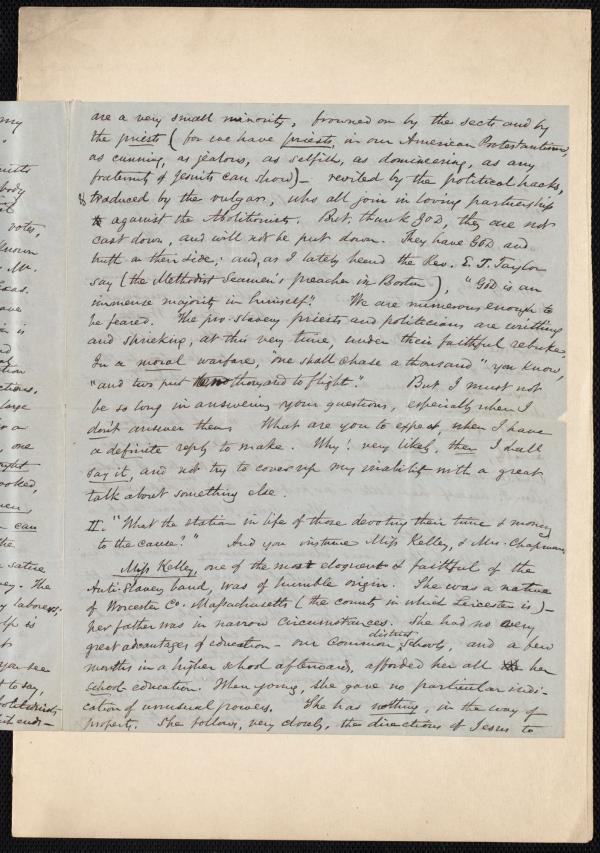 my
votes,
known
Mr.
have
is
large
one
ooked,
can
the
The
is
you see
t to say,
are a very small minority, frowned on by the sects and by
the priests (for we have priests, in our American Protestantism,
as cunning, as jealous, as selfish, as domineering, as any
fraternity of Jesuits can show) – reviled by the political hacks,
& traduced by the vulgar, who all join in loving partnership
against the Abolitionists. But, thank God, they are not
cast down, and will not be put down. They have God and
truth on their side; and, as I lately heard the Rev. E. T. Taylor
say (the Methodist Seamen's preacher in Boston), "God is an
immense majority in himself". We are numerous enough to
be feared. The pro-slavery priests and politicians are writhing
and shrieking, at this very time, under their faithful rebukes.
In a moral warfare, "one shall chase a thousand" you know,
"and two put ten thousand to flight". But I must not
be so long in answering your questions, especially when I
don't answer them. What are you to expect, when I have
a definite reply to make. Why! very likely, then I shall
say it, and not try to cover up my inability with a great
talk about something else.
II. "What the station in life of those devoting their time & money
to the cause?" And you instance Miss Kelley, & Mrs. Chapman.
Miss Kelley, one of the most eloquent & faithful of the
Anti-Slavery band, was of humble origin. She was a native
of Worcester Co. Massachusetts (the county in which Leicester is) –
her father was in narrow circumstances. She had no very
great advantages of education – our common district schools, and a few
months in a higher school afterward, afforded her all her
school education. When young, she gave no particular indi-
cation of unusual powers. She has nothing, in the way of
property. She follows, very closely, the directions of Jesus to